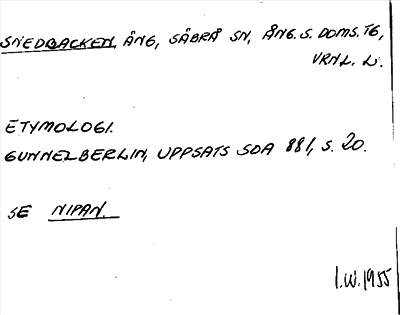 SNEDBACKEN, ÅNG, SÄBRÅ SN, ÅNG. S. DOMS. TG,
VRNL. L.
ETYMOLOGI.
GUNNEL BERLIN, UPPSATS SOA 881, S. 20.
SE NIPAN.
I.W. 1955